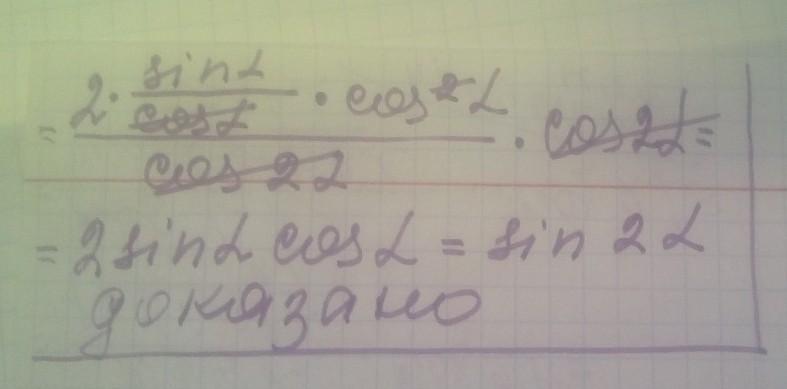 = (2 · sinα/cosα · cos²α)/cos 2α · cos2α =
= 2sinα cosα = sin 2α
доказано